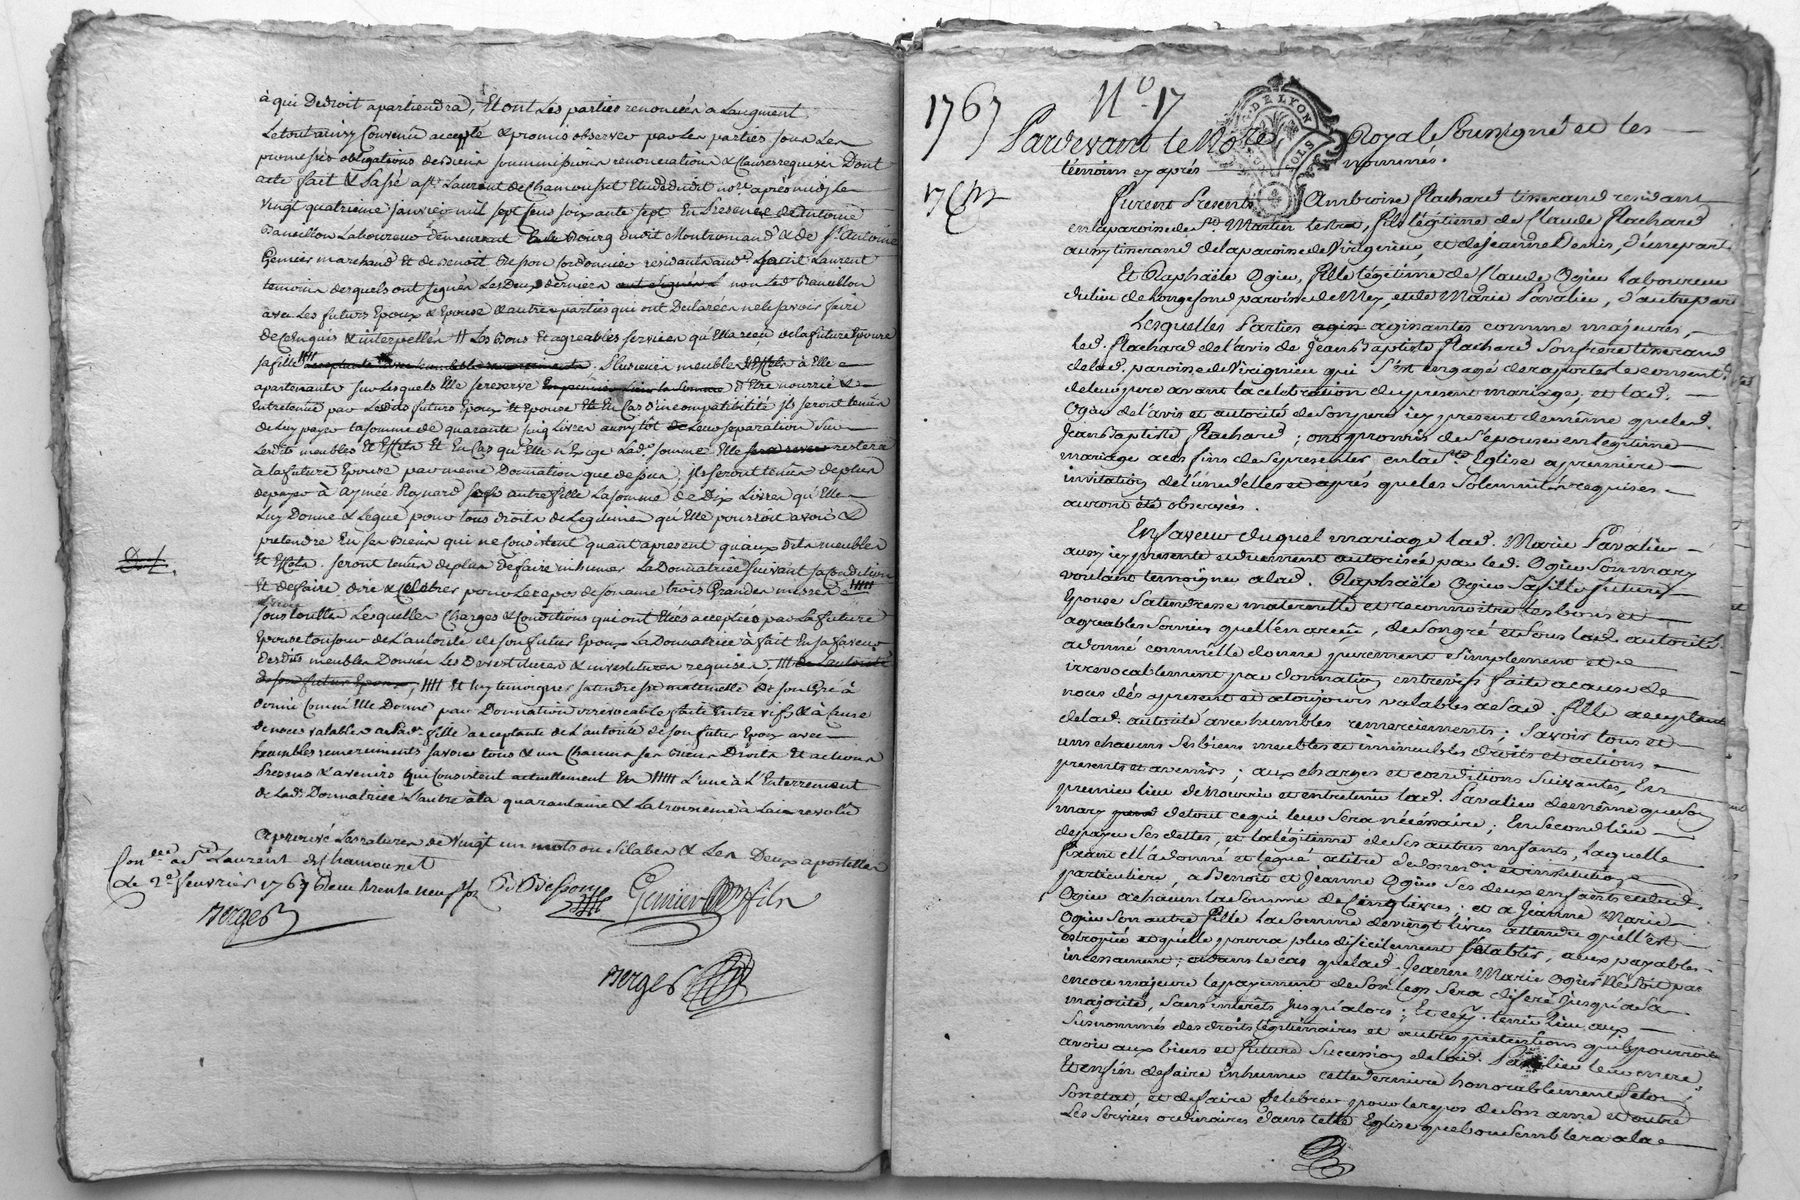 à qui De droit apartiendra, Et ont Les parties renoncées a Laugment
Le tout ainsy Convenu accepté & promis observer par Les parties sous Les
promesses obligations de Biens soummissions renonciations & Clauses requises Dont
acte fait & Passé a St. Laurent de Chamousset Etude dudit nore après midj Le
vingt quatrieme janvier mil sept sens soixante sept En Presence de Antoine
Laboureur demeurant Bourg dudit Montromand & de St. Antoine
Gemier marchand Et de Benoit Besson Cordonnier residants aud. Saint Laurent
temoins desquels ont signés Les Deux derniers non Led.
avec Les futurs Epoux & Epouse & autres parties qui ont Declarées ne le savoir faire
de Enquis & interpellés # Les Bons Et agreables services qu'Ella recu de la future Epouse
sa fille Plusieurs meubles à Elle
apartenants sur Lesquels Elle se reserve D'Etre nourrie &
Entretenue par Lesdits futurs Epoux Et Epouse Et En Cas d'incompatibilité jls seront tenus
de Luy payer La somme de quarante sinq Livres aussytôt Leur separation sur
Lesdits meubles Et Effets Et En Cas qu'Elle n'Exige Lad. somme Elle restera
à La future Epouse par meme Donnation que dessus, jls seront tenus de plus
de payer à Aymée Raynard autre fille La somme de Dix Livres qu'Elle
Luy Donne & Legue pour tous droits de Legitimes qu'Elle pourroit avoir &
pretendre En ses Biens qui ne Consistent quant apresent qu'aux dits meubles
Et Effets. seront tenus de plus de faire inhumer La Donnatrice suivant sa Condition
Et de faire dire & Celebrer pour Le repos de son ame trois Grandes messes
sous toutes Lesquelles Charges & Conditions qui ont Etés acceptées par La future
Epouse toujours de L'autorité de son futur Epoux La Donnatrice à fait En sa faveur
Desdits meubles Donnés Les Devestitures & investitures requises, de L'autorité
de son futur Epoux, Et Luy temoigner sa tendresse maternelle de son Gré à
donné Comme Elle Donne par Donnation irrevocable faite Entre vifs & à Cause
de noces valable a sad. fille acceptante de L'autorité de son futur Epoux avec
humbles remerciments savoir tous & un Chacuns ses Biens Droits Et actions
Presens & avenirs qui Consistent actuellement En L'une à L'Enterrement
de Lad. Donnatrice L'autre à La quarantaine & La troisieme à L'an revolu
Aprouvé Les ratures de Vingt un mots ou silabes & Les Deux apostilles
Con.llé à St. Laurent de Chamousset
Le 2e fevrier 1767 Reçu trente neuf sols
B Besson
Gemier fils
Berger
Berger
1767 No. 17
Pardevant le No.re Royal Sousigné et les
témoins cy après nommés.
DE LYON
SOLS
Furent Presents Ambroise Flachard tisserand residant
en la paroisse de St. Martin lestra, fils légitime de Claude Flachard
aussy tisserand de la paroisse de Virignieu, et de Jeanne Denis, d'une part.
Et Raphaële Ogier, fille légitime de Claude Ogier laboureur
du lieu de Longesond paroisse de Mey, et de Marie Pavalier, d'autre part
Lesquelles Parties agis agissantes comme majeures
led. Flachard de l'avis de Jean Baptiste Flachard son frere tisserand
de lad. paroisse de Virignieu qui s'est engagé de raporter le consent.t
de leur pere avant la celebration du present mariage, et lad.
Ogier de l'avis et autorité de son pere icy present de même que led.
Jean Baptiste Flachard; ont promis de s'épouser en légitime
mariage a ces fins de se presenter en la Ste Eglise a premiere
invitation de l'un d'elles et après que les Solemnités requises
auront été observées.
En faveur duquel mariage lad. Marie Pavalier
aussy icy presente et duement autorisée par led. Ogier Son mary
voulant temoigner a lad. Raphaële Ogier Sa fille future
Epouse Sa tendresse maternelle et reconnoitre les bons et
agréables Services quelle en a reçu, de Son gré et Sous lad. autorité
a donné comme elle donne purement Simplement et
irrevocablement par donnation entrevifs faite a cause de
noces dés apresent et a toujours valables a Sad. fille acceptante
de lad. autorité avec humbles remerciements; Savoir tous et
uns chacuns Ses biens meubles et immeubles droits et actions
presents et avenirs; aux charges et conditions Suivantes, En
premier lieu de nourrir et entretenir lad. Pavalier de même que Son
mary de tout ce qui leur Sera nécéssaire; En Second lieu
de payer Ses dettes, et la légitime de Ses autres enfants, laquelle
fixant elle à donné et legué a titre de donn.on et institution
particuliere, a Benoit et Jeanne Ogier Ses deux enfants et dud.
Ogier a chacun la Somme de livres; et a Jeanne Marie
Ogier Son autre fille la Somme de vingt livres attendu quell'est
estropiée et quelle pourra plus dificilement S'établir, aux payables
incessament; et dans le cas que lad. Jeanne Marie Ogier Ne Soit pas
encore majeure le payement de Son legs Sera diferé jusqu'a Sa
majorité, Sans interêts jusqu'alors; Et ce tenir lieu aux
Susnommés des droits légitimaires et autres pretentions quils pourroient
avoir aux biens et future Succession de lad. Pavalier leur mere
Et enfin de faire inhumer cette derniere honorablement Selon
Son etat, et de faire Celebrer pour le repos de Son ame et outre
Les Services ordinaires dans telle Eglise que bon Semblera a la